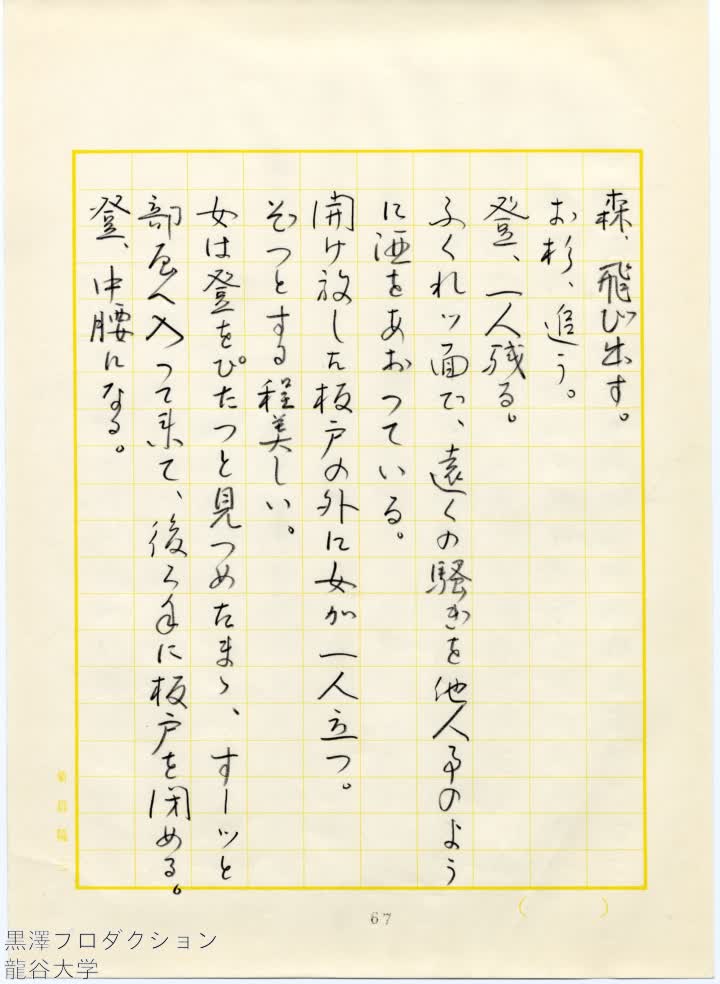 森、飛び出す。
お杉、追う。
登、一人残る。
ふくれッ面で、遠くの騒ぎを他人事のよう
に酒をあおつている。
開け放した板戸の外に女が一人立つ。
ぞつとする程美しい。
女は登をぴたつと見つめたまゝ、すーッと
部屋へ入つて来て、後ろ手に板戸を閉める。
登、中腰になる。
67
黒澤プロダクション
龍谷大学